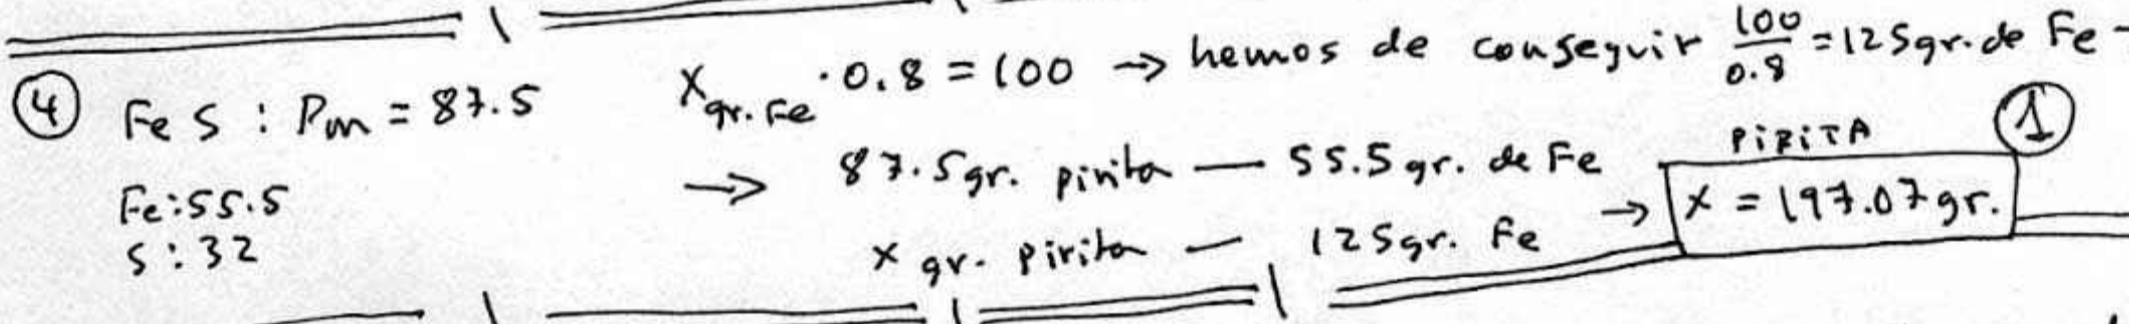 ④ FeS : Pm = 87.5
Fe: 55.5
S: 32
X gr. Fe · 0.8 = 100 → hemos de conseguir 100/0.8 = 125 gr. de Fe -
→ 87.5 gr. pirita — 55.5 gr. de Fe
x gr. pirita — 125 gr. Fe
→ PIRITA ①
x = 197.07 gr.